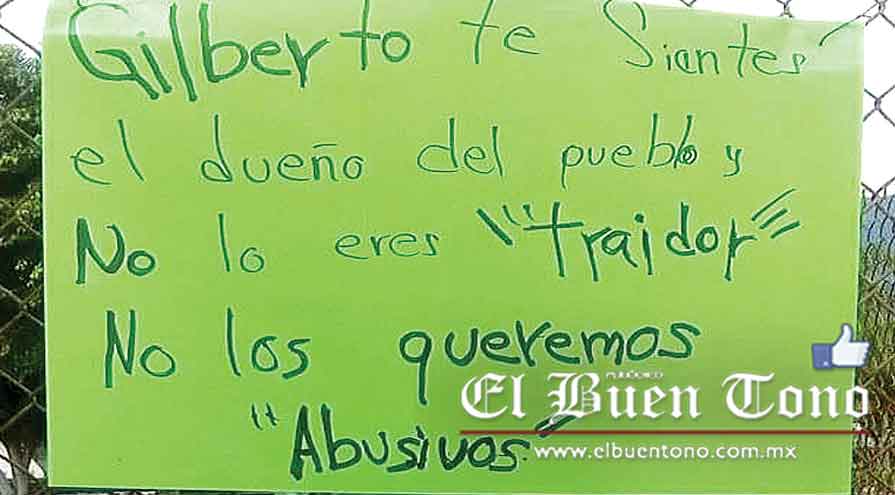 Gilberto te Sientes
el dueño del pueblo y
No lo eres "traidor"
No los queremos
"Abusivos"
PERIÓDICO
El Buen Tono
www.elbuentono.com.mx